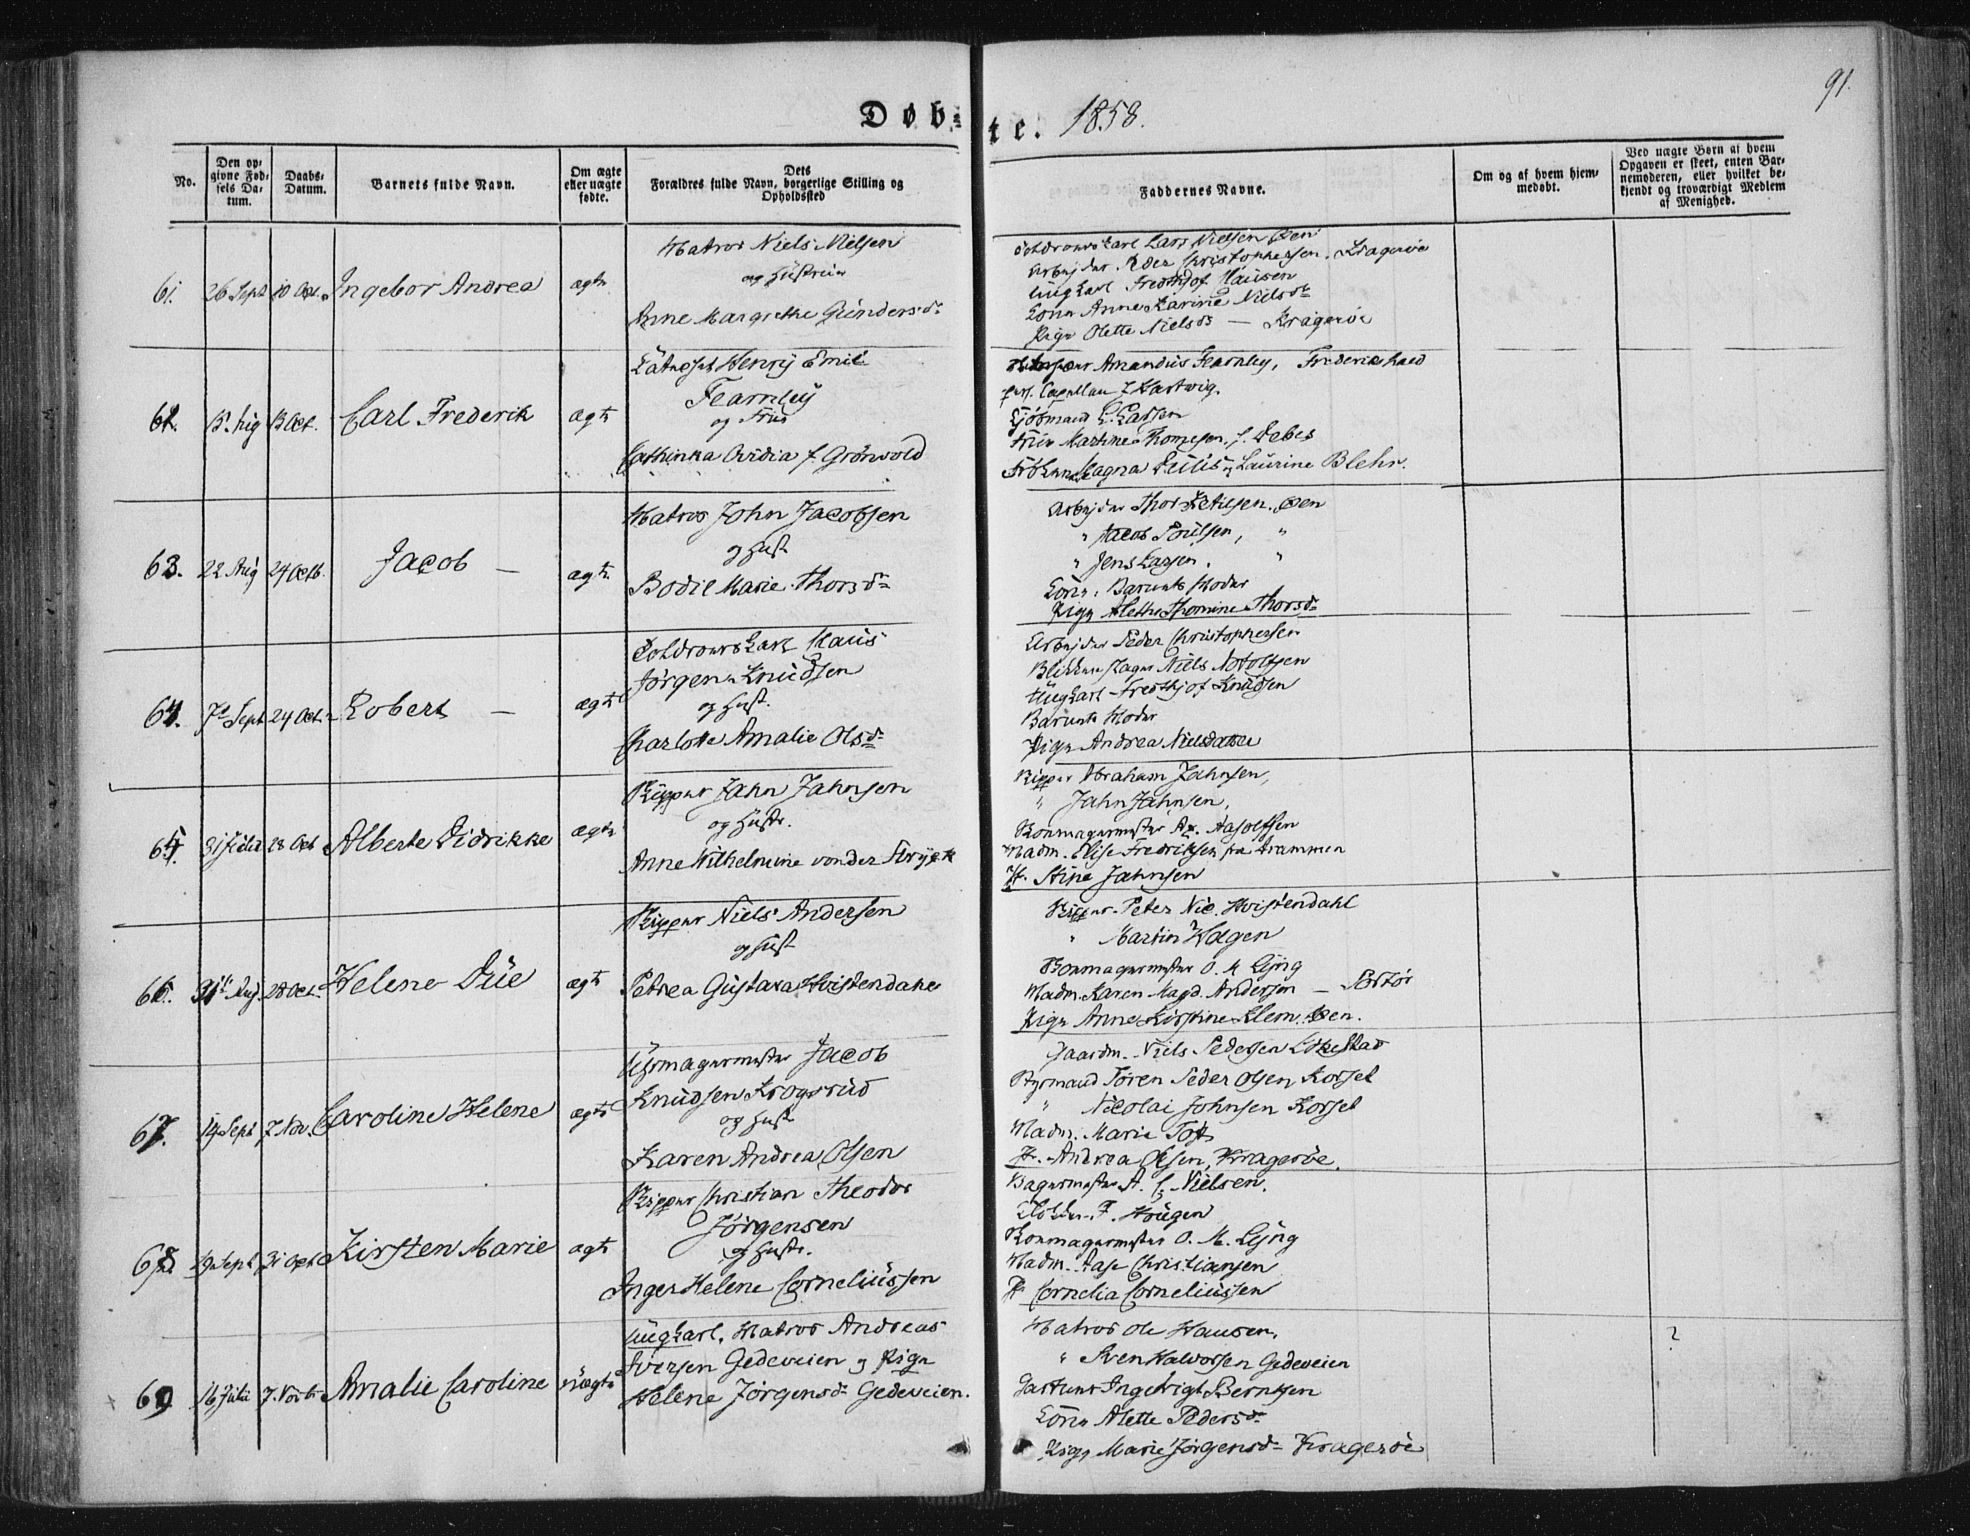 Døbte. 1858.
91.
No.
Den opgivne Fødsels Datum.
Daabs-Datum.
Barnets fulde Navn.
Om ægte eller uægte fødte.
Dets Forældres fulde Navn, borgerlige Stilling og Opholdssted
Faddernes Navne.
Om og af hvem hjemmedøbt.
Ved uægte Børn af hvem Opgaven er skeet, enten Barnemoderen, eller hvilket bekjendt og troværdigt Medlem af Menighed.
61. 26 Sept 10 Oct. Ingebor Andrea ægte
Matros Niels Nielsen
og Hustrue
Anne Margrethe Gundersd.
Lars Nielsen Øen
Arbejder Peder Christophersen, Kragerøe
Ungkarl Fredthjof Hansen
Kone Anne Karine Nielsd.
Pige Olette Nielsd. — Kragerøe
62. 13 Oct. Carl Frederik ægte
Henry Emil
Fearnley
og Frue
Cathinka Ovidia f. Grönvold
Amandus Fearnley, Frederikshald
pers. Capellan Hartwig.
Kjöbmand L. Larsen
Frue Martine Thomesen, f. Debes
Fröken Magna og Laurine Blehr.
63. 22 Aug 24 Octb. Jacob — ægte.
Matros John Jacobsen
og Hust
Bodil Marie Thorsd.
Arbejder Thor Ketilsen, Øen
" Jacob Poulsen, "
" Jens Larsen. "
Kone, Barnets Moder
Pige Alethe Thomine Thorsd.
64. 7de Sept 24 Oct. Robert — ægte
Hans
Jörgen Knudsen
og Hust.
Charlotte Amalie Olsd.
Arbejder Peder Christophersen
Niels Adolfsen
Ungkarl Fredthjof Knudsen
Barnets Moder
Pige Andrea Nielsdatter
65. 28 Oct Alberte Didrikke ægte
Skipper Jahn Jahnsen
og Hustr.
Anne Wilhelmine von der
Skipper Abraham Jahnsen,
" Jahn Jahnsen,
Skomagermester
Madm. Elise Fredriksen fra Drammen
Jf. Stine Jahnsen
66. 31te Aug 28 Oct. Helene Düe ægte
Skipper Niels Andersen
og Hust
Petrea Gustava Hvistendahl
Skipper Peter Nic. Hvistendahl
" Martin Hagen
Skomagermester O. M Lyng
Madm. Karen Magd. Anderson — Portör
Pige Anne Kirstine Klem. Øen.
67. 14 Sept 7 Nov. Caroline Helene ægte
Uhrmagermester Jacob
Knudsen Krogsrud
og Hust
Karen Andrea Olsen
Gaardm. Niels Pedersen Lökestad
Styrmand Sören Peder Olsen Korset
" Nicolai Johnsen Korset
Madm. Marie Toft
Jf. Andrea Olsen, Kragerøe.
68. 19 Sept 31 Oct Kirsten Marie ægte
Skipper Christian Theodor
Jörgensen
og Hustr.
Inger Helene Corneliussen
Bagermester A. C. Nielsen.
F. Hougen
Skomagermester O. M. Lyng
Madm. Aase Christiansen
Jf Cornelia Corneliussen
69 16 Juli 7. Novbr Amalie Caroline uægte
Ungkarl, Matros Andreas
Iversen Gedeveien og Pige
Helene Jörgensd. Gedeveien.
Matros Ole Hansen,
" Sven Halvorsen Gedeveien
Gartner Ingebrigt Berntsen
Kone Alette Pedersd.
Pige Marie Jörgensd. Kragerøe
?